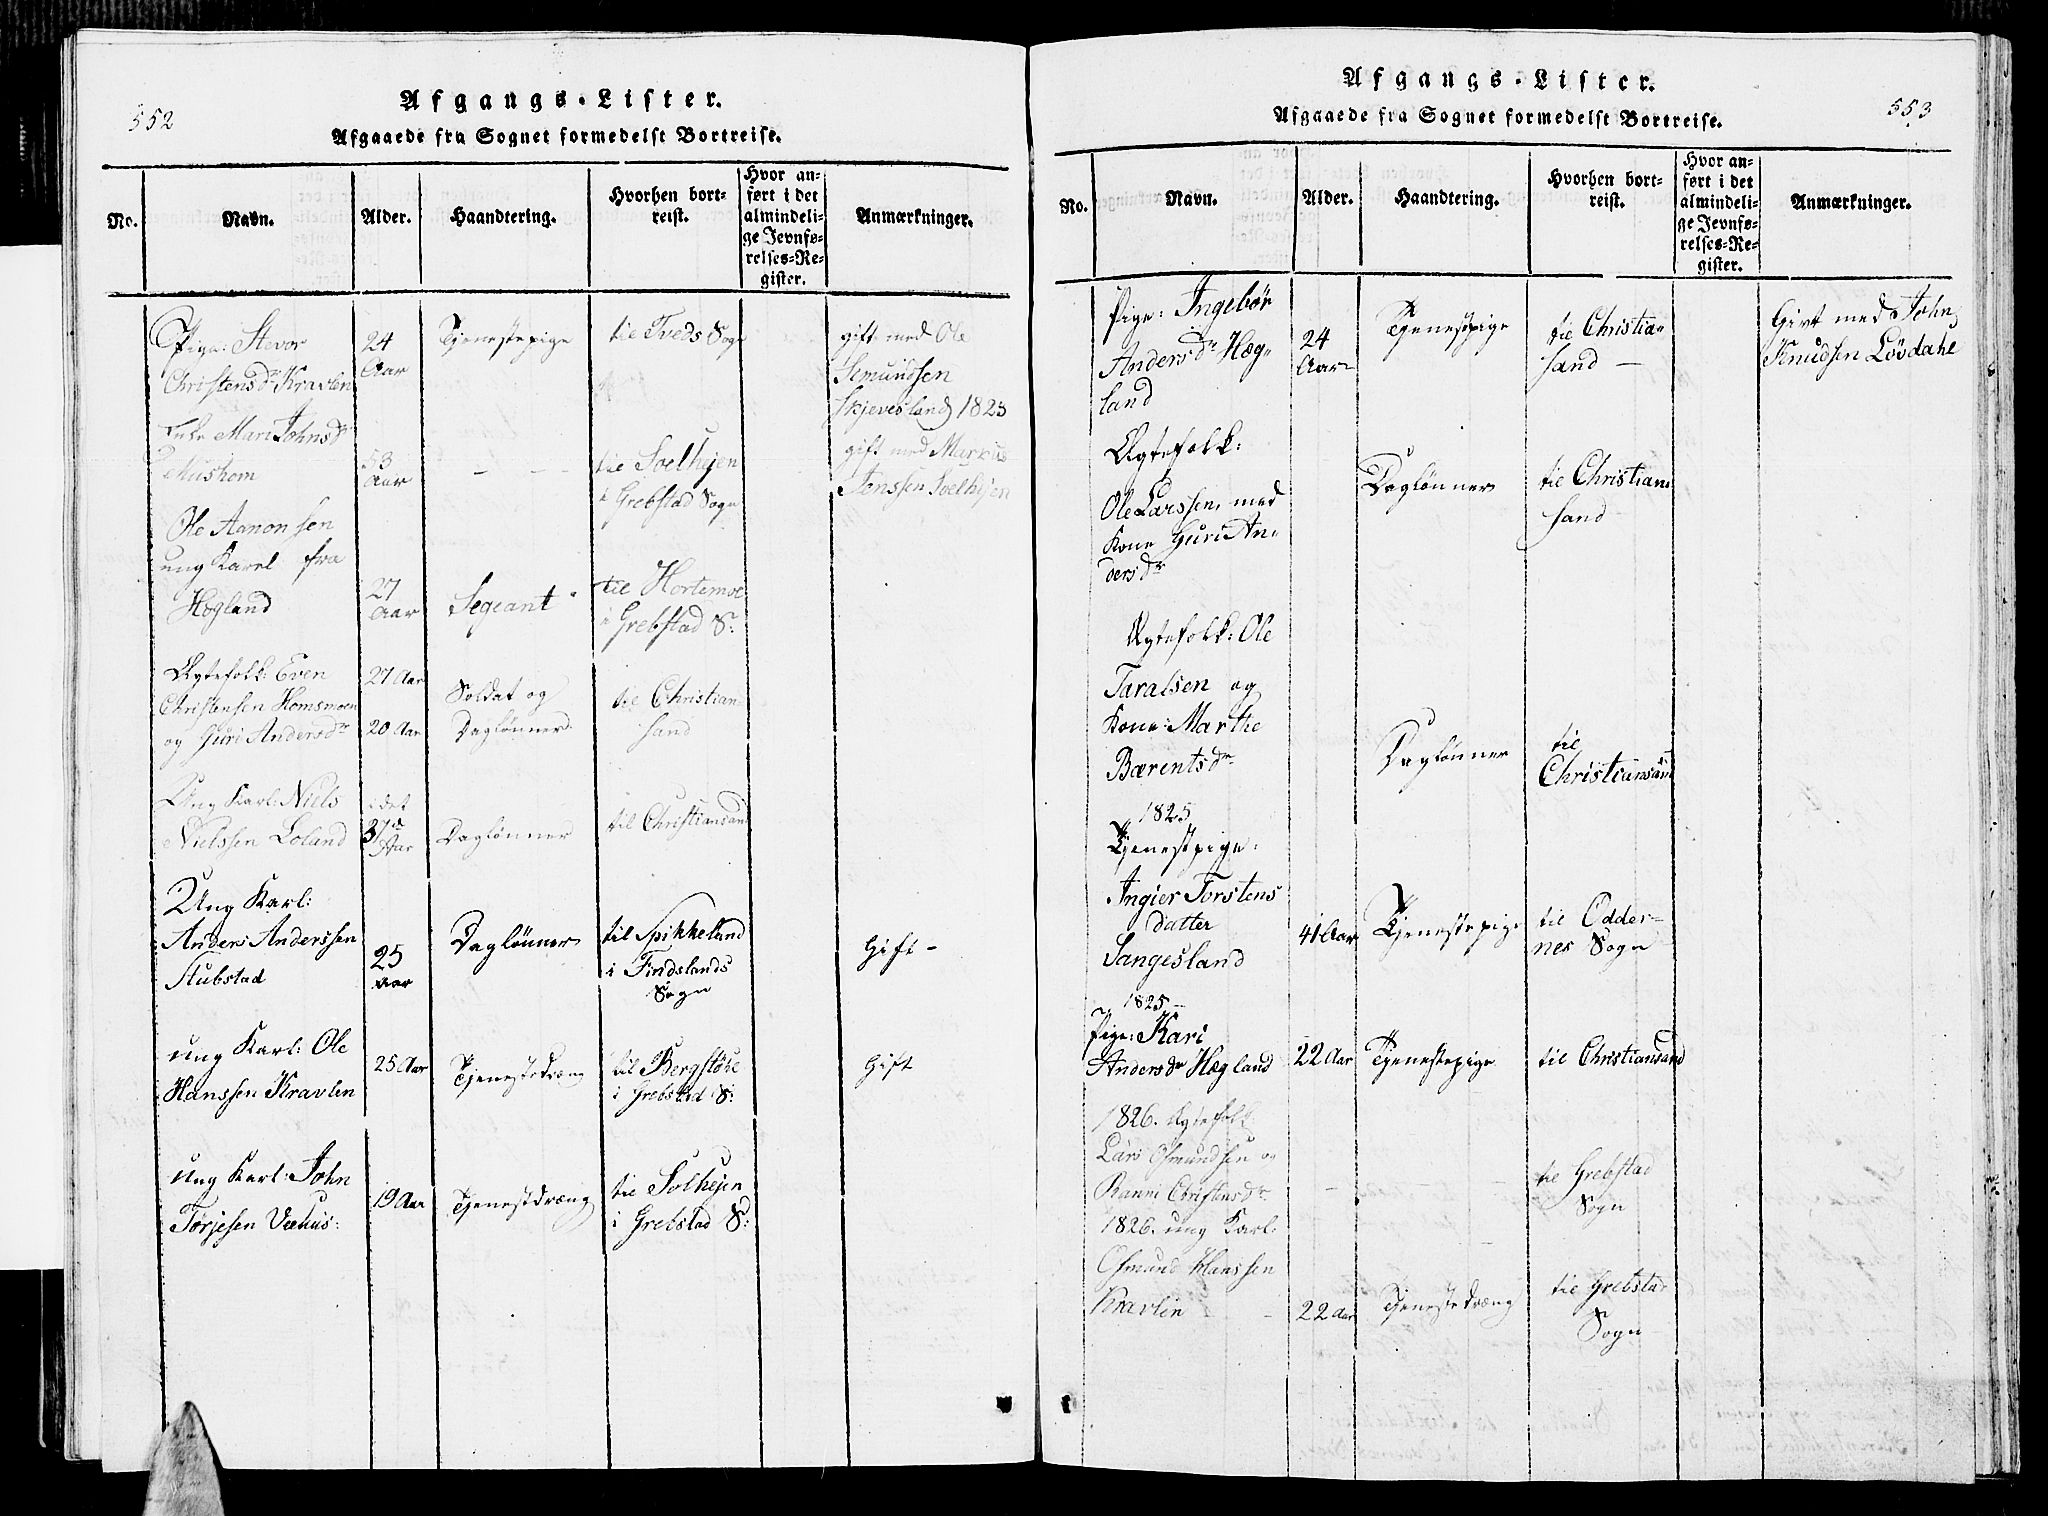 552
Afgangs-Lister.
Afgaaede fra Sognet formedelst Bortreise.
No.
Navn.
Alder.
Haandtering.
Hvorhen bort-
reist.
Hvor an-
ført i det
almindeli-
ge Jevnfø-
relses-Re-
gister.
Anmærkninger.
Pige: Stevor
Christensdr Kravlen
24
Aar
Tjenestepige
til Tveds Sogn
gift med Ole
Semundsen
Skjevesland 1823
Enke Mari Johnsdr
Mushom
53
Aar
- - -
til Soelhejen
i Grebstad Sogn
gift med Markus
Jenssen Soelhejen
Ole Aanonsen
ung Karel fra
Hægland
27
Aar
Segeant
til Hortemoe
i Grebstad S:
Ægtefolk: Even
Christensen Homsmoen
og Guri Andersdr
27 Aar
20 Aar
Soldat og
Daglønner
til Christian
sand
Ung Karl: Niels
Nielssen Loland
i det
37te
Aar
Daglønner
til Christiansand
Ung Karl:
Anders Anderssen
Stubstad
25
Aar
Daglønner
til Spikkeland
i Findslands
Sogn
Gift -
ung Karl: Ole
Hanssen Kravlen
25 Aar
Tjenestedræng
til Bergstøke
i Grebstad S:
Gift
ung Karl: John
Tørjesen Vehus:
19 Aar
Tjenestdræng
til Solhejen
i Grebstad S:
553
Afgangs-Lister.
Afgaaede fra Sognet formedelst Bortreise.
No.
Navn.
Alder.
Haandtering.
Hvorhen bort-
reist.
Hvor an-
ført i det
almindeli-
ge Jevnfø-
relses-Re-
gister.
Anmærkninger.
Pige: Ingebør
Andersdr Hæg-
land
24
Aar
Tjenestpige
til Christian
sand —
Givt med John
Knudsen Løvdahl
Ægtefolk:
Ole Larssen, med
Kone Guri An-
dersdr
Daglønner
til Christian
sand
Ægtefolk: Ole
Taralsen og
Kone: Marthe
Bærentsdr
Daglønner
til
Christiansand
1825
Tjenestpige:
Ingier Torstens
datter
Sangesland
41 Aar
Tjenestepige
til Odder-
nes Sogn
1825
Pige: Kari
Andersdr Hægland
22 Aar
Tjenestepige
til Christiansand
1826. Ægtefolk
Lars Osmundsen og
Ranni Christensdr
til Grebstad
Sogn
1826. ung Karl:
Osmund Hanssen
Kravlen
22 Aar
Tjenestedræng
til Grebstad
Sogn